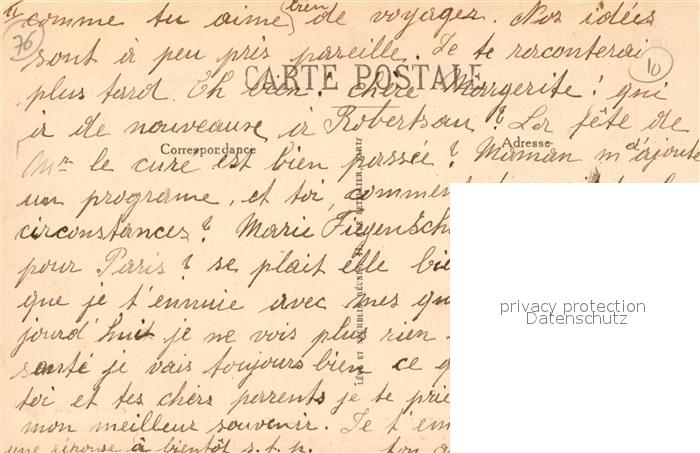 comme tu aime bien de voyager. Nos idées
76
sont à peu près pareille. Je te raconterai
10
CARTE POSTALE
plus tard. Eh bien! chère Margerite! qui
à de nouveaux à Robertsau? La fête de
Correspondance
Adresse
Mr le curé est bien passée? Maman m'ajoute
un programe, et toi, comment
circonstances? Marie Figensch
pour Paris? se plait elle bie
que je t'ennuie avec mes qu
jourd'hui je ne vois plus rien
santé je vais toujours bien ce q
toi et tes chers parents je te prie
mon meilleur souvenir. Je t'em
une réponse à bientôt s.t.p. ton
LÉVY ET NEURDEIN RÉUNIS, 44, RUE LETELLIER, PARIS
privacy protection
Datenschutz